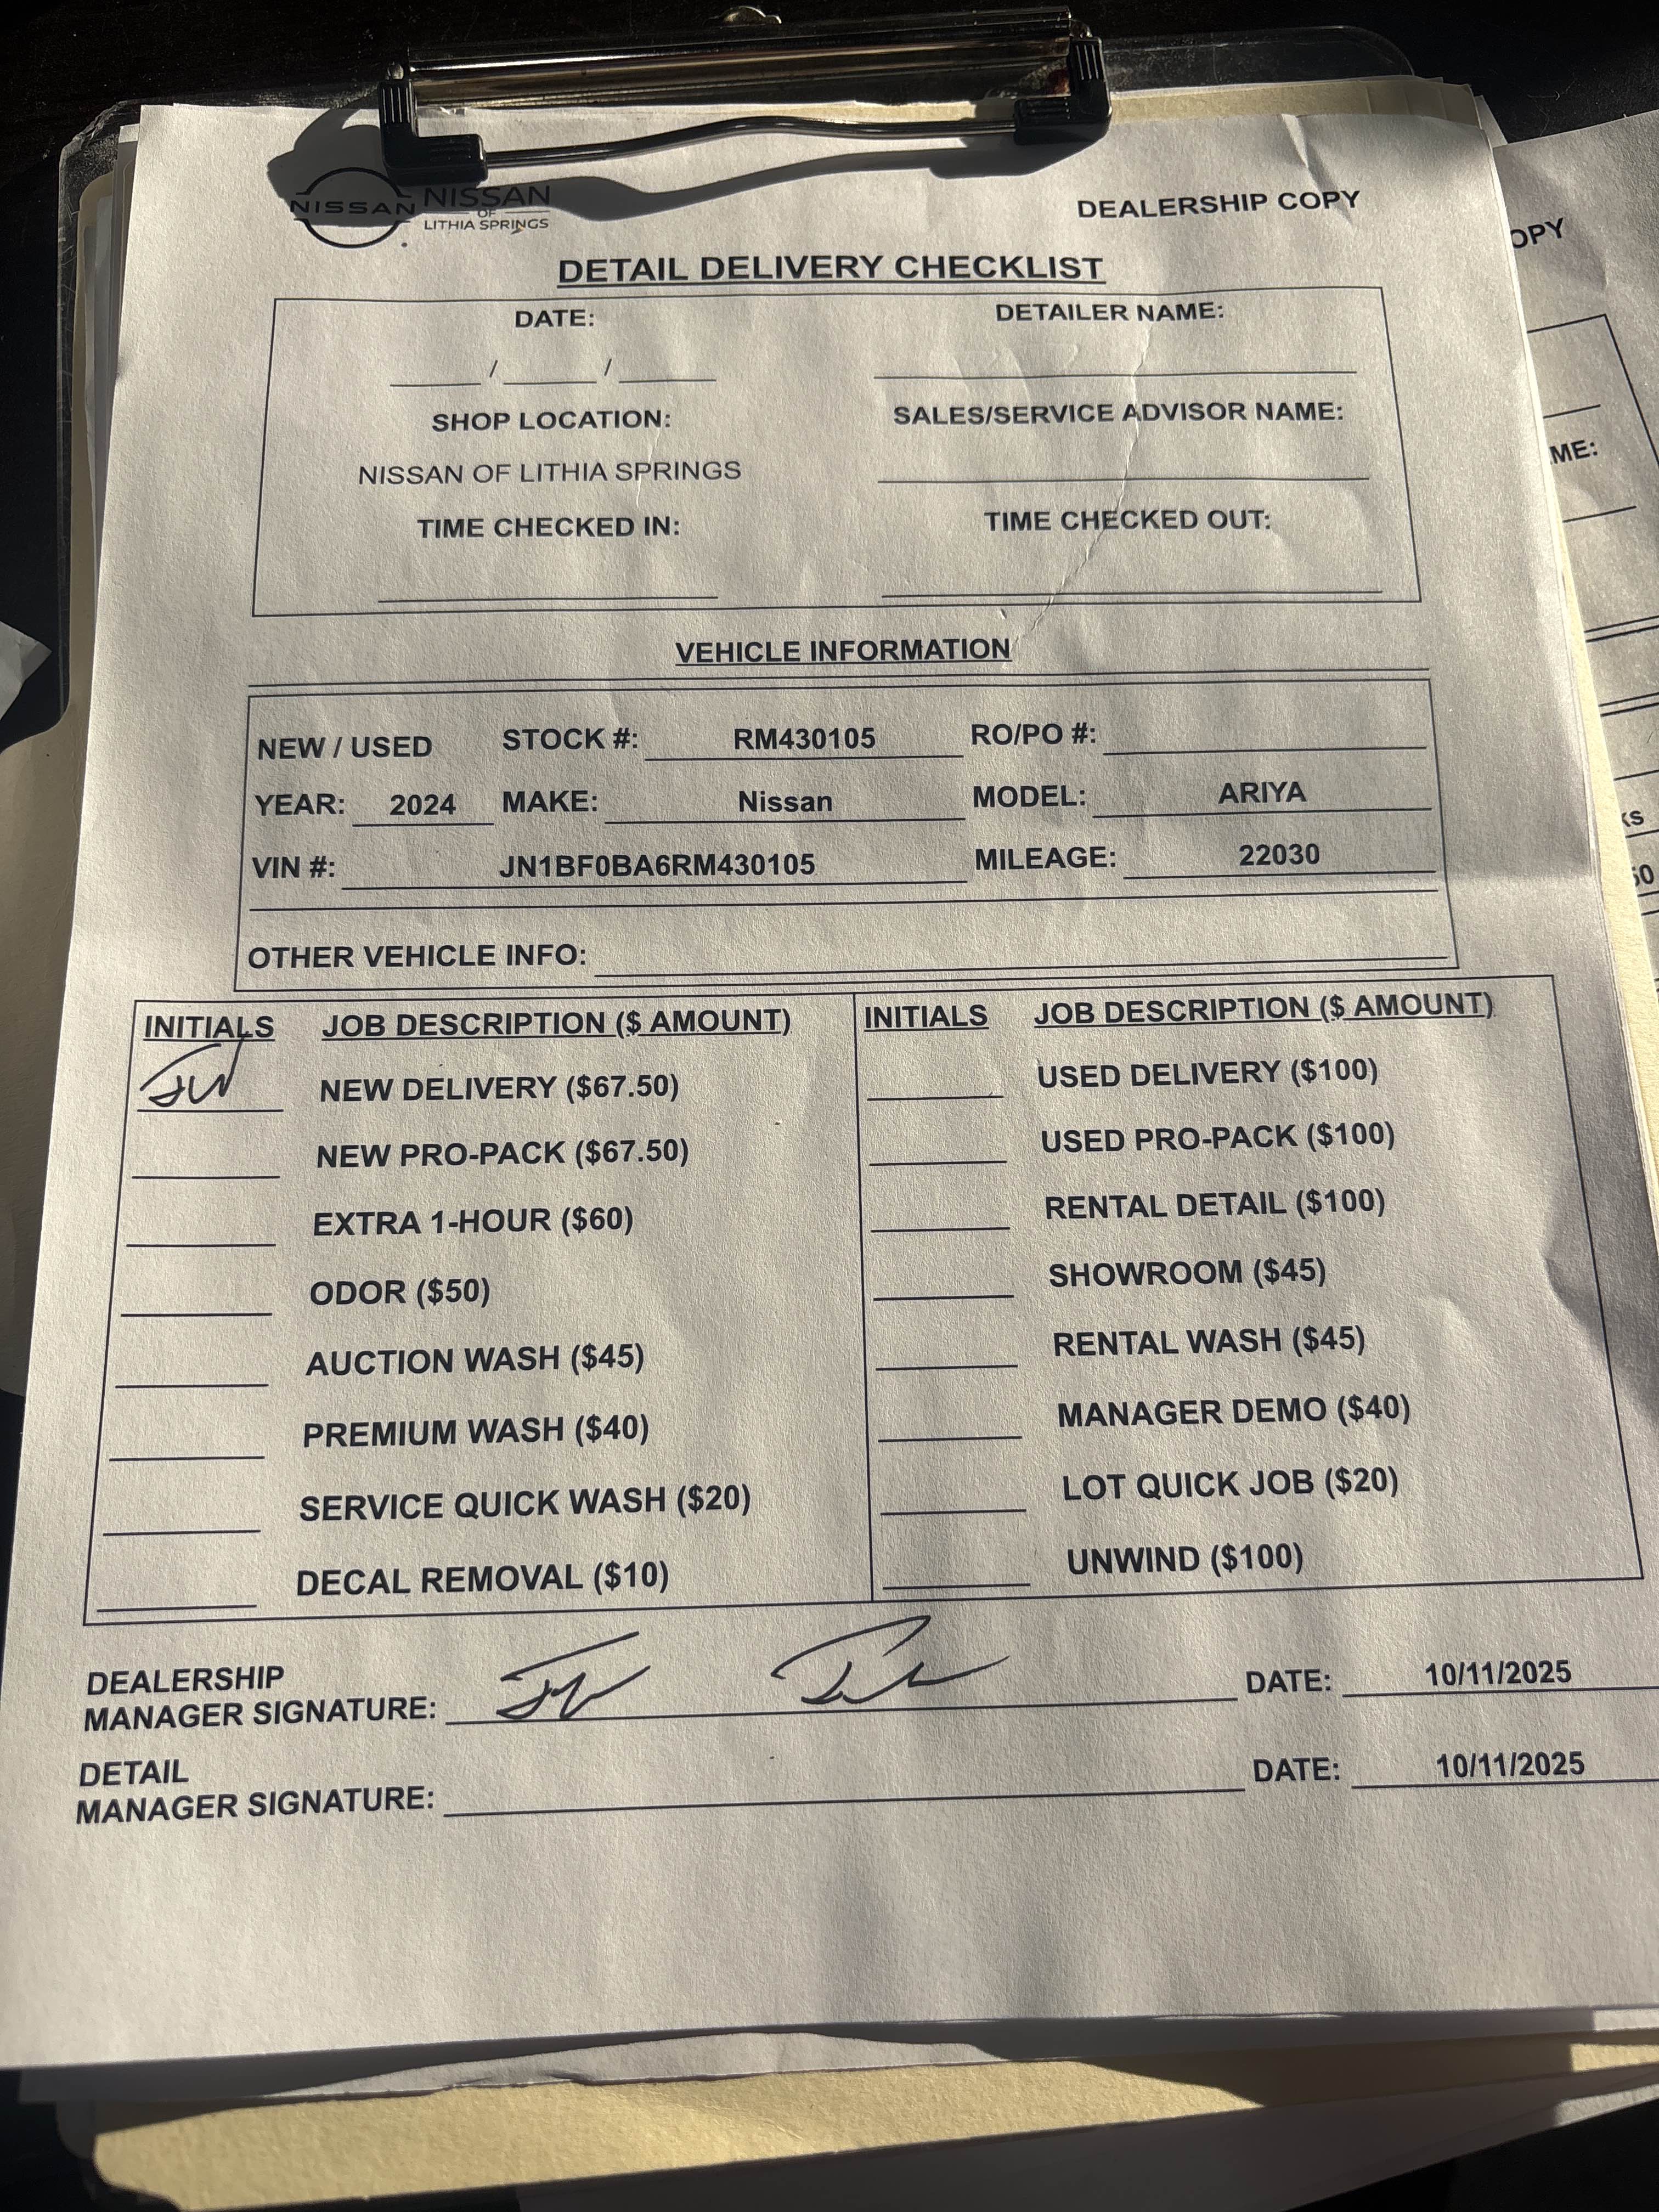 NISSAN
NISSAN
OF
LITHIA SPRINGS
DEALERSHIP COPY
DETAIL DELIVERY CHECKLIST
DATE: DETAILER NAME:
/ /
SHOP LOCATION: SALES/SERVICE ADVISOR NAME:
NISSAN OF LITHIA SPRINGS
TIME CHECKED IN: TIME CHECKED OUT:
VEHICLE INFORMATION
NEW / USED STOCK #: RM430105 RO/PO #:
YEAR: 2024 MAKE: Nissan MODEL: ARIYA
VIN #: JN1BF0BA6RM430105 MILEAGE: 22030
OTHER VEHICLE INFO:
INITIALS JOB DESCRIPTION ($ AMOUNT) INITIALS JOB DESCRIPTION ($ AMOUNT)
NEW DELIVERY ($67.50) USED DELIVERY ($100)
NEW PRO-PACK ($67.50) USED PRO-PACK ($100)
EXTRA 1-HOUR ($60) RENTAL DETAIL ($100)
ODOR ($50) SHOWROOM ($45)
AUCTION WASH ($45) RENTAL WASH ($45)
PREMIUM WASH ($40) MANAGER DEMO ($40)
SERVICE QUICK WASH ($20) LOT QUICK JOB ($20)
DECAL REMOVAL ($10) UNWIND ($100)
DEALERSHIP
MANAGER SIGNATURE: DATE: 10/11/2025
DETAIL
MANAGER SIGNATURE: DATE: 10/11/2025